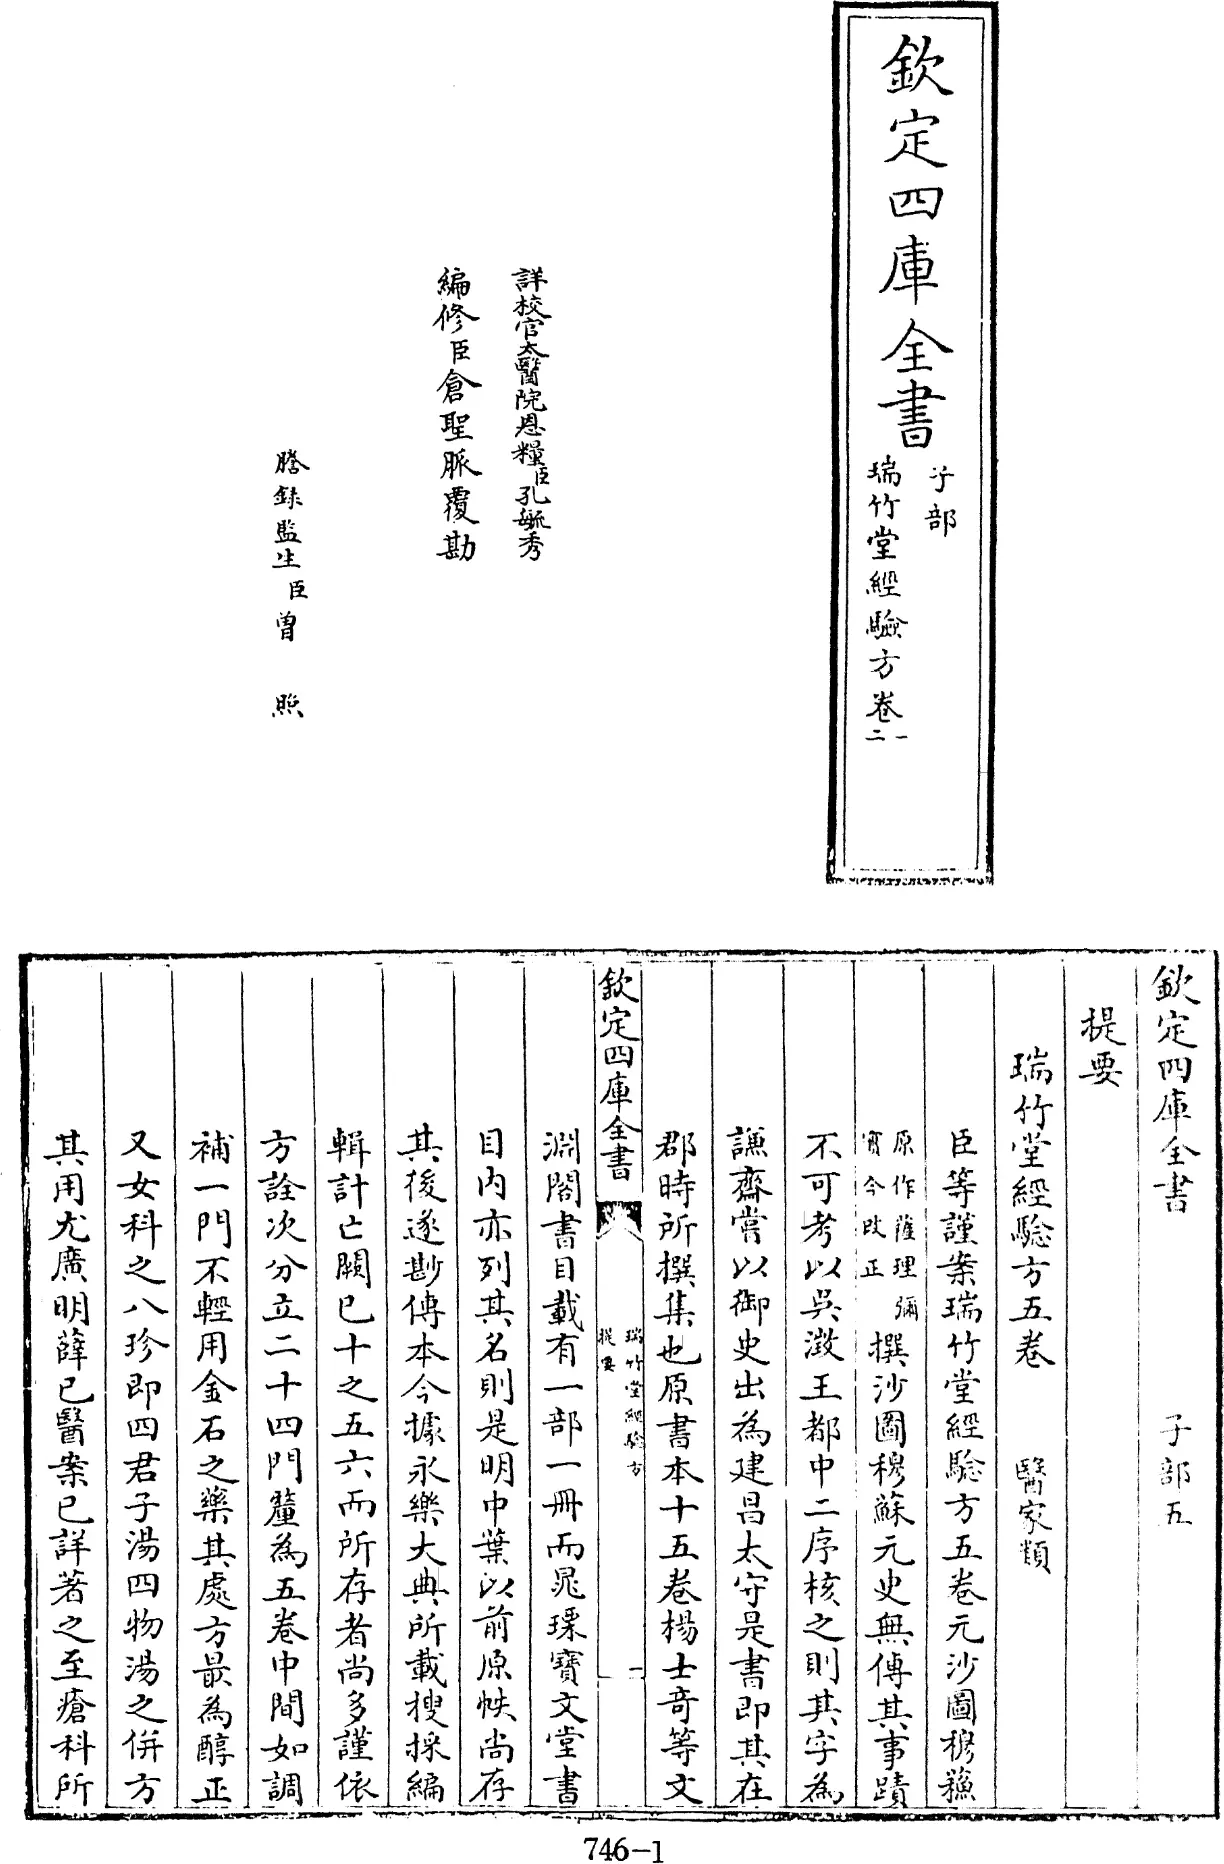 欽定四庫全書
子部
瑞竹堂經驗方卷一
二
詳校官太醫院恩糧臣孔毓秀
編修臣倉聖脈覆勘
謄錄監生臣曾 照
欽定四庫全書 子部五
提要
瑞竹堂經驗方五卷 醫家類
臣等謹案瑞竹堂經驗方五卷元沙圖穆蘇
原作薩理彌
實今改正
撰沙圖穆蘇元史無傳其事蹟
不可考以吳澂王都中二序核之則其字為
謙齋嘗以御史出為建昌太守是書即其在
郡時所撰集也原書本十五卷楊士奇等文
欽定四庫全書
瑞竹堂經驗方
提要
一
淵閣書目載有一部一冊而晁瑮寶文堂書
目內亦列其名則是明中葉以前原帙尚存
其後遂尠傳本今據永樂大典所載搜採編
輯計亡闕已十之五六而所存者尚多謹依
方詮次分立二十四門釐為五卷中間如調
補一門不輕用金石之藥其處方最為醇正
又女科之八珍即四君子湯四物湯之併方
其用尤廣明薛已醫案已詳著之至瘡科所
746-1